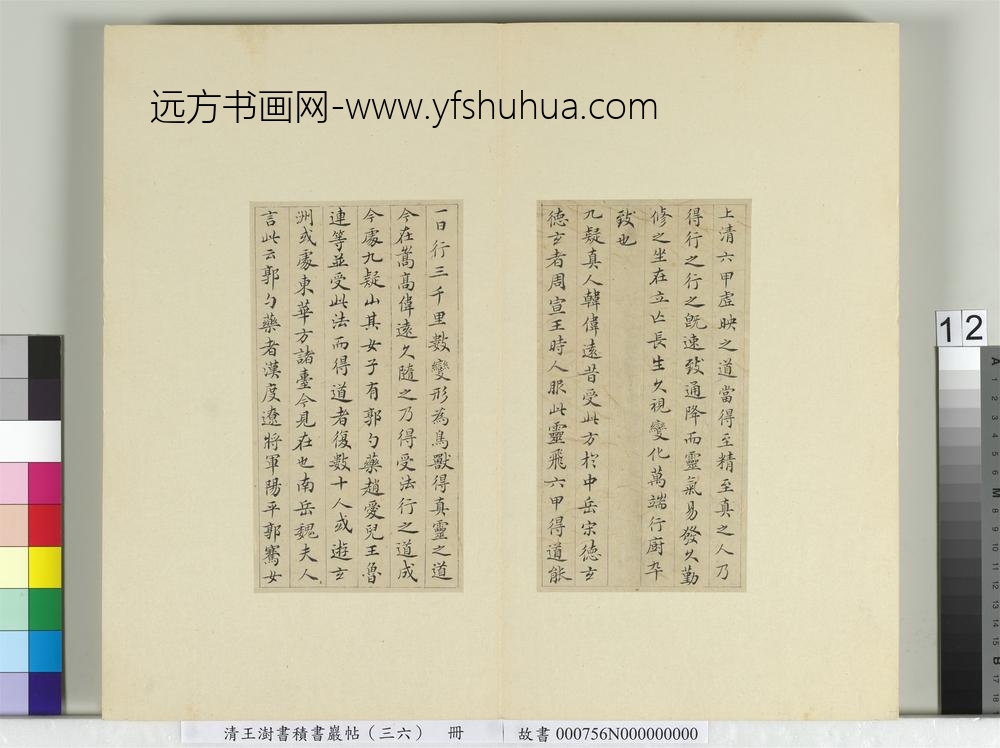 远方书画网-www.yfshuhua.com
上清六甲虛映之道當得至精至真之人乃
得行之行之既速致通降而靈氣易發久勤
修之坐在立亡長生久視變化萬端行廚卒
致也
九疑真人韓偉遠昔受此方於中岳宋德玄
德玄者周宣王時人服此靈飛六甲得道能
一日行三千里數變形為鳥獸得真靈之道
今在嵩高偉遠久隨之乃得受法行之道成
今處九疑山其女子有郭勺藥趙愛兒王魯
連等並受此法而得道者復數十人或遊玄
洲或處東華方諸臺今見在也南岳魏夫人
言此云郭勺藥者漢度遼將軍陽平郭騫女
12
清王澍書積書巖帖（三六） 冊
故書 000756N000000000